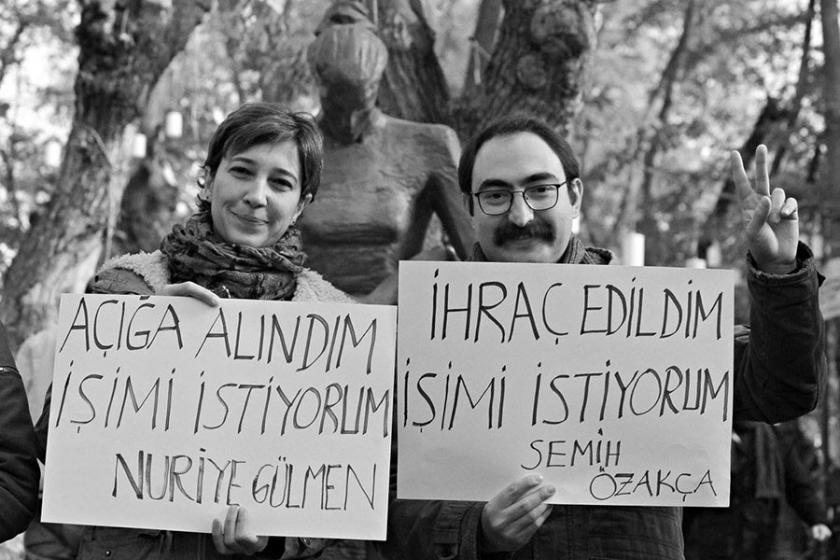 AÇIĞA ALINDIM
İŞİMİ İSTİYORUM
NURİYE GÜLMEN
İHRAÇ EDİLDİM
İŞİMİ İSTİYORUM
SEMİH
ÖZAKÇA